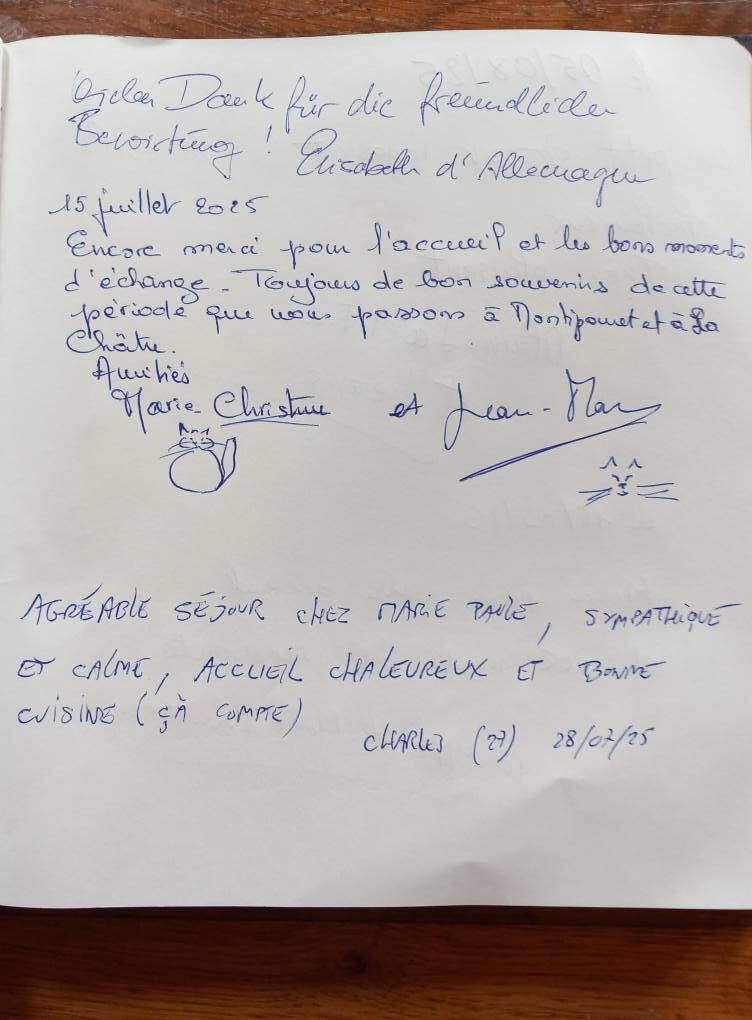 Vielen Dank für die freundliche
Bewirtung! Elisabeth d'Allemagne
15 juillet 2025
Encore merci pour l'accueil et les bons moments
d'échange - Toujours de bon souvenirs de cette
période que nous passons à Montipouret et à La
Châtre.
Amitiés
Marie-Christine et Jean-Marc
AGRÉABLE SÉJOUR CHEZ MARIE PAULE, SYMPATHIQUE
ET CALME, ACCUEIL CHALEUREUX ET BONNE
CUISINE (ÇÀ COMPTE)
CHARLES (27) 28/07/25